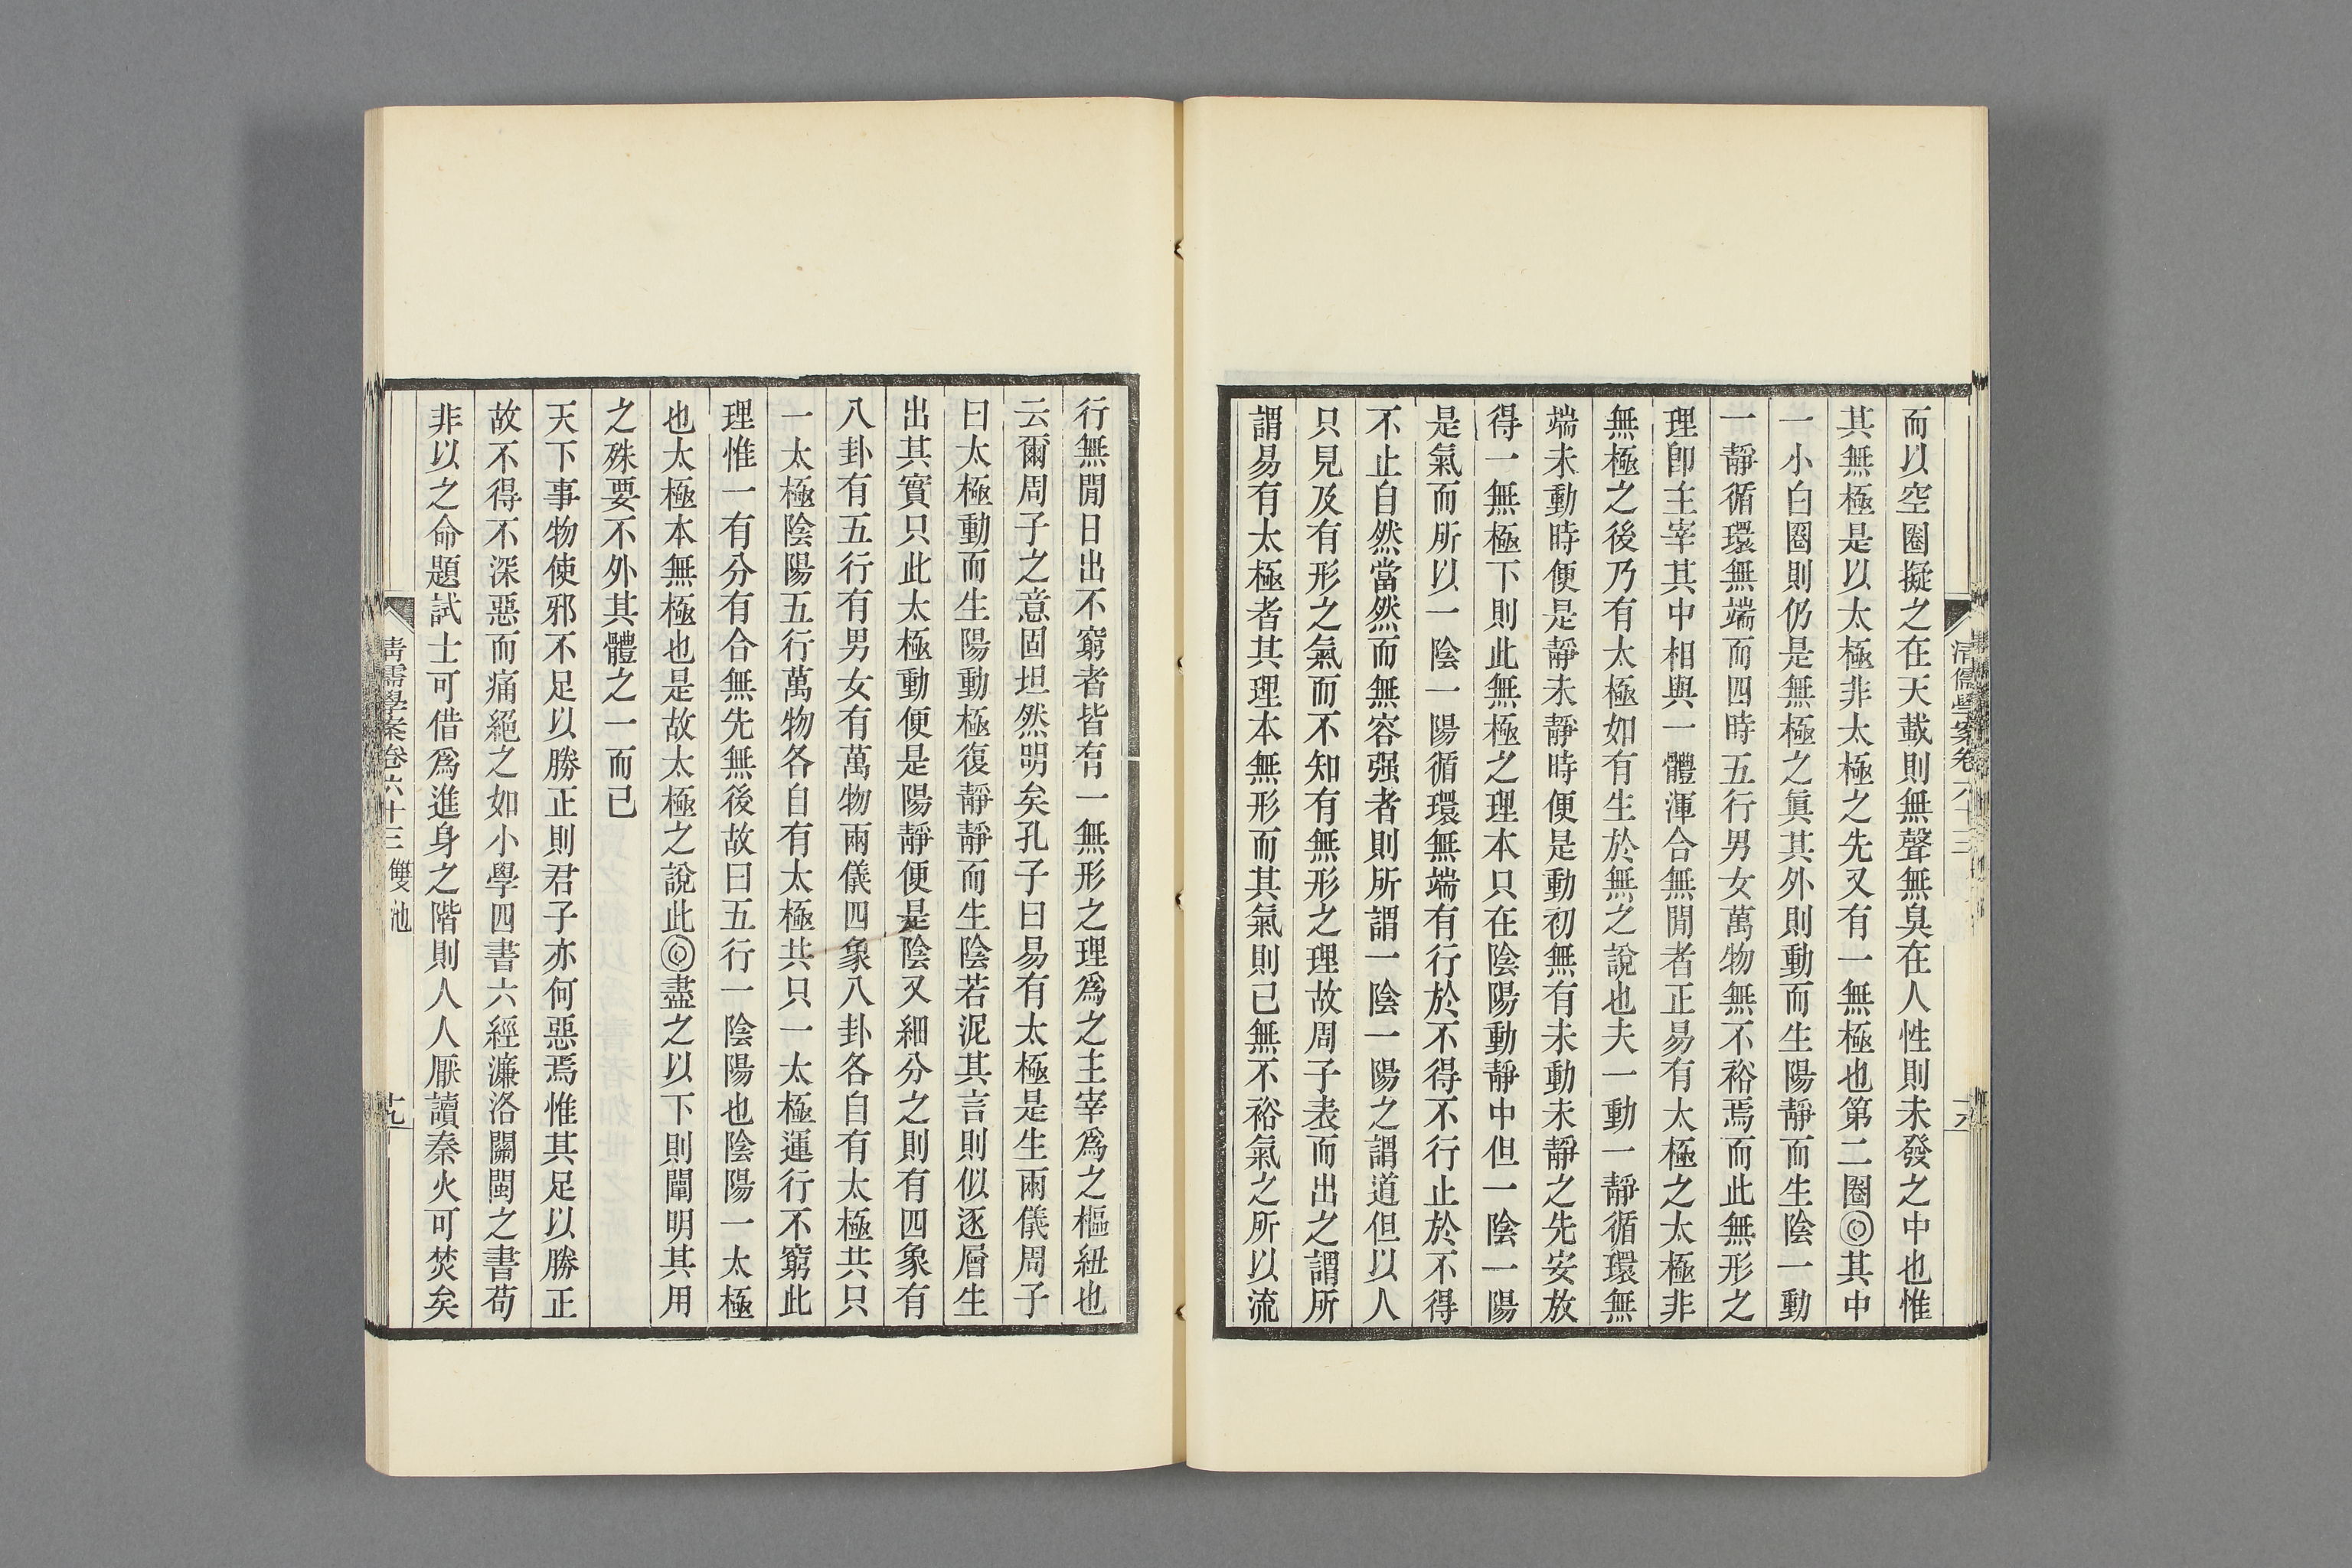 而以空圈擬之在天載則無聲無臭在人性則未發之中也惟
其無極是以太極非太極之先又有一無極也第二圈◎其中
一小白圈則仍是無極之眞其外則動而生陽靜而生陰一動
一靜循環無端而四時五行男女萬物無不裕焉而此無形之
理卽主宰其中相與一體渾合無閒者正易有太極之太極非
無極之後乃有太極如有生於無之說也夫一動一靜循環無
端未動時便是靜未靜時便是動初無有未動未靜之先安放
得一無極下則此無極之理本只在陰陽動靜中但一陰一陽
是氣而所以一陰一陽循環無端有行於不得不行止於不得
不止自然當然而無容强者則所謂一陰一陽之謂道但以人
只見及有形之氣而不知有無形之理故周子表而出之謂所
謂易有太極者其理本無形而其氣則已無不裕氣之所以流
清儒學案卷六十三
行無閒日出不窮者皆有一無形之理爲之主宰爲之樞紐也
云爾周子之意固坦然明矣孔子曰易有太極是生兩儀周子
曰太極動而生陽動極復靜靜而生陰若泥其言則似逐層生
出其實只此太極動便是陽靜便是陰又細分之則有四象有
八卦有五行有男女有萬物兩儀四象八卦各自有太極共只
一太極陰陽五行萬物各自有太極共只一太極運行不窮此
理惟一有分有合無先無後故曰五行一陰陽也陰陽一太極
也太極本無極也是故太極之說此◎盡之以下則闡明其用
之殊要不外其體之一而已
天下事物使邪不足以勝正則君子亦何惡焉惟其足以勝正
故不得不深惡而痛絕之如小學四書六經濂洛關閩之書苟
非以之命題試士可借爲進身之階則人人厭讀秦火可焚矣
清儒學案卷六十三 雙池 十九